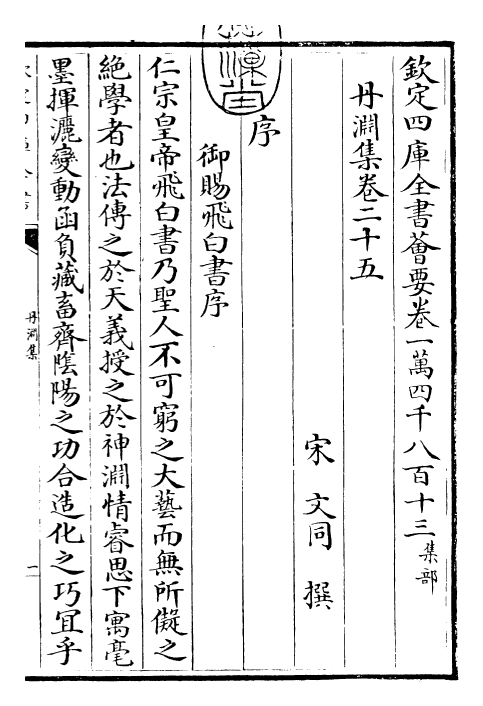 欽定四庫全書薈要卷一萬四千八百十三集部
丹淵集卷二十五
宋文同撰
序
御賜飛白書序
仁宗皇帝飛白書乃聖人不可窮之大藝而無所儗之
絶學者也法傳之於天義授之於神淵情睿思下寓毫
墨揮灑變動函負藏畜齊隂陽之功合造化之巧冝乎
丹淵集
一